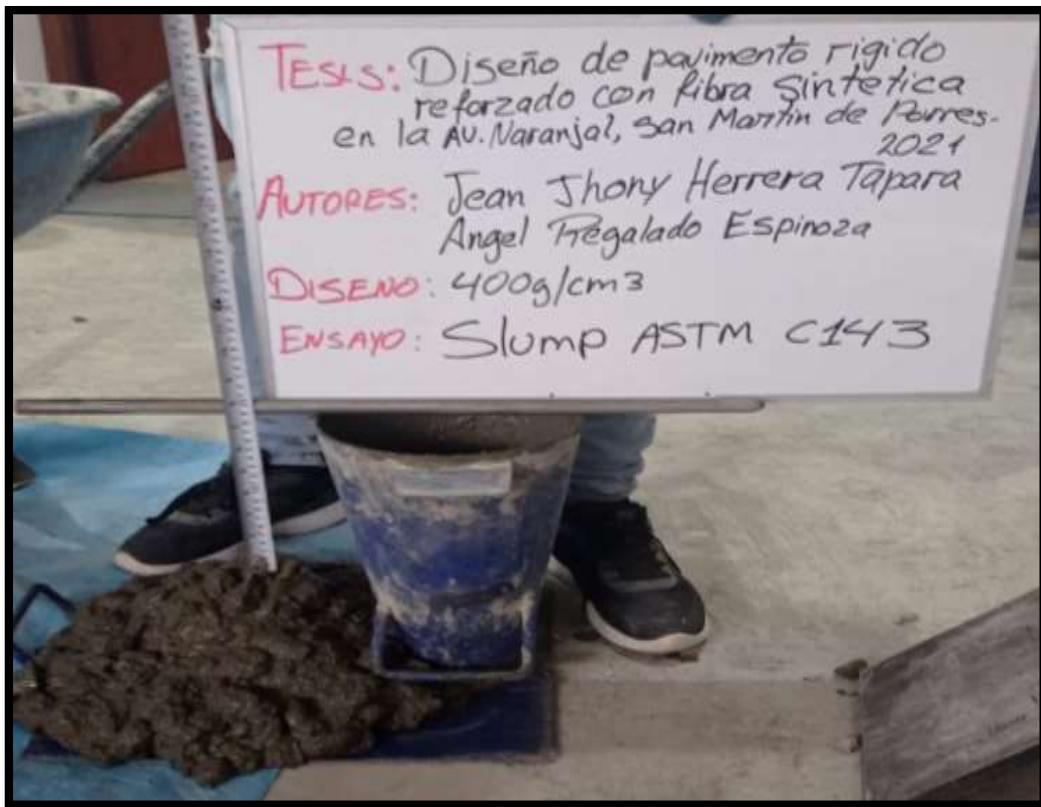 TESIS: Diseño de pavimento rigido
reforzado con fibra Sintetica
en la AV. Naranjal, San Martin de Porres-
2021
AUTORES: Jean Jhony Herrera Tapara
Angel Regalado Espinoza
DISEÑO: 400g/cm3
ENSAYO: Slump ASTM C143